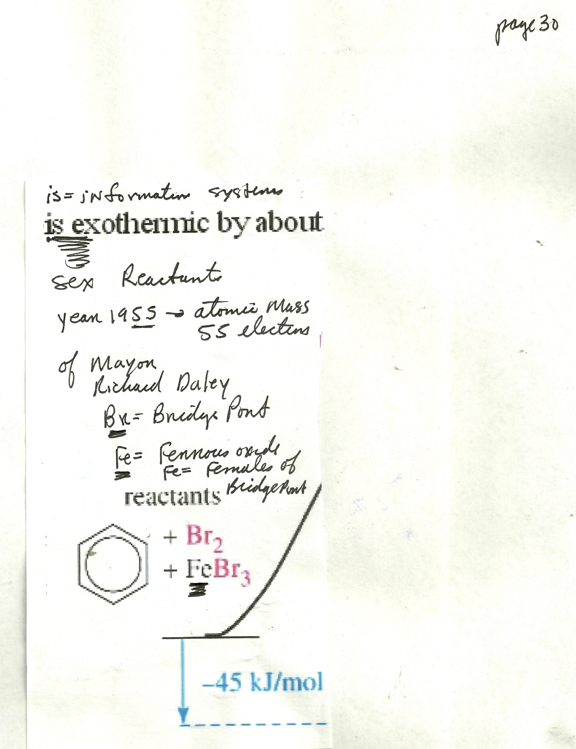 page 30
is = information systems
is exothermic by about
sex Reactants
year 1955 → atomic Mass
55 electrons
of Mayor
Richard Daley
Br = Bridge Port
Fe = Ferrous oxide
Fe = Females of
BridgePort
reactants
+ Br₂
+ FeBr₃
−45 kJ/mol